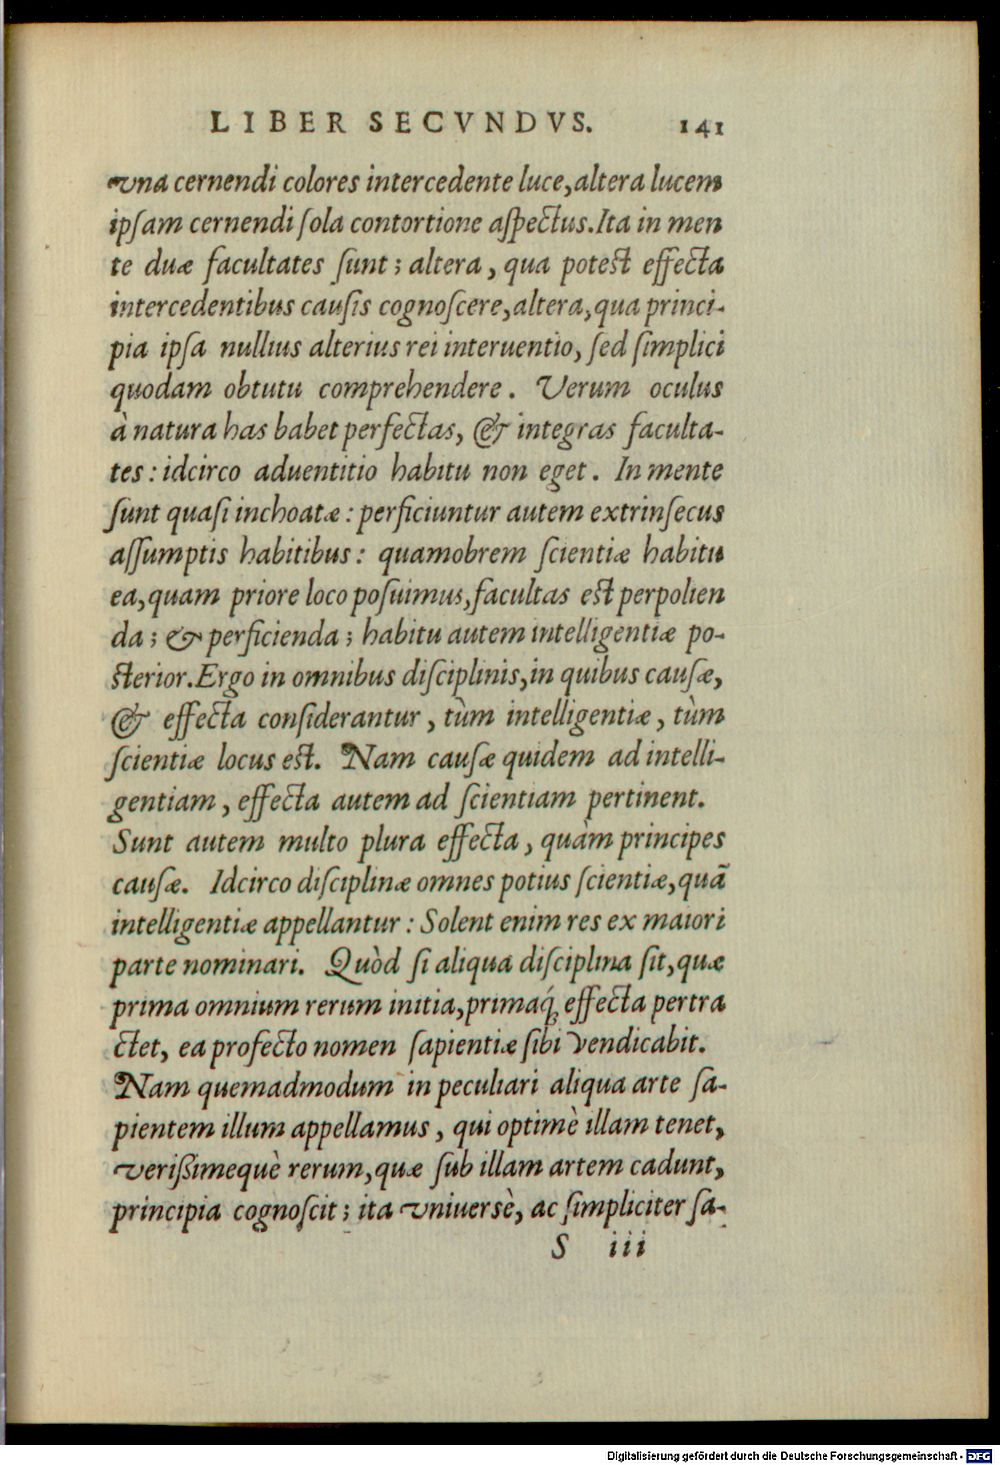 LIBER SECVNDVS. 141
vna cernendi colores intercedente luce,altera lucem
ipſam cernendi ſola contortione aſpectus.Ita in men
te duæ facultates ſunt; altera, qua poteſt effecta
intercedentibus cauſis cognoſcere,altera,qua princi-
pia ipſa nullius alterius rei interuentio, ſed ſimplici
quodam obtutu comprehendere. Verum oculus
à natura has babet perfectas, & integras faculta-
tes: idcirco aduentitio habitu non eget. In mente
ſunt quaſi inchoatæ: perficiuntur autem extrinſecus
aſſumptis habitibus: quamobrem ſcientiæ habitu
ea,quam priore loco poſuimus,facultas eſt perpolien
da; & perficienda; habitu autem intelligentiæ po-
ſterior.Ergo in omnibus diſciplinis,in quibus cauſæ,
& effecta conſiderantur, tùm intelligentiæ, tùm
ſcientiæ locus eſt. Nam cauſæ quidem ad intelli-
gentiam, effecta autem ad ſcientiam pertinent.
Sunt autem multo plura effecta, quàm principes
cauſæ. Idcirco diſciplinæ omnes potius ſcientiæ,quā
intelligentiæ appellantur: Solent enim res ex maiori
parte nominari. Quòd ſi aliqua diſciplina ſit,quæ
prima omnium rerum initia,primaq́; effecta pertra
ctet, ea profecto nomen ſapientiæ ſibi vendicabit.
Nam quemadmodum in peculiari aliqua arte ſa-
pientem illum appellamus, qui optimè illam tenet,
verißimequè rerum,quæ ſub illam artem cadunt,
principia cognoſcit; ita vniuersè, ac ſimpliciter ſa-
S iii
Digitalisierung gefördert durch die Deutsche Forschungsgemeinschaft - DFG